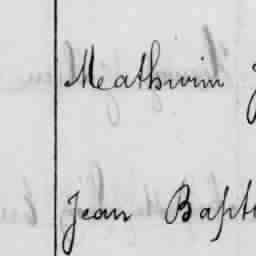 Mathivim J
Jean Bapt